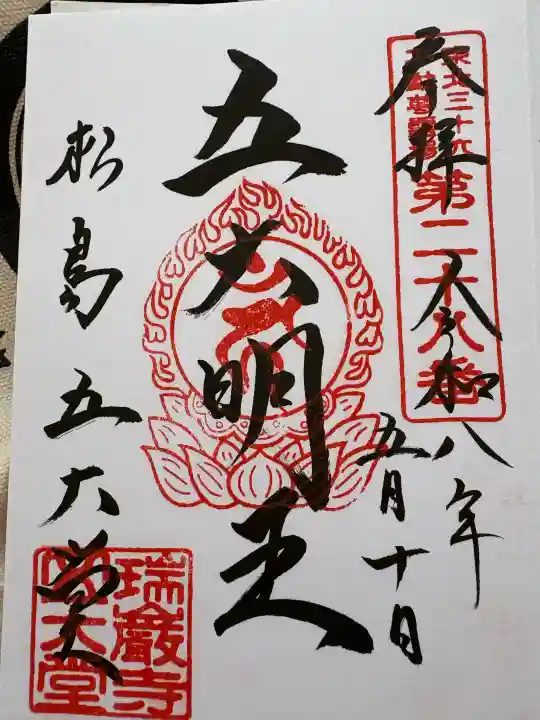 奉拝
東北三十六
不動尊霊場
第二十八番
令和八年
五月十日
五大明王
松島五大堂
瑞巖寺
五大堂